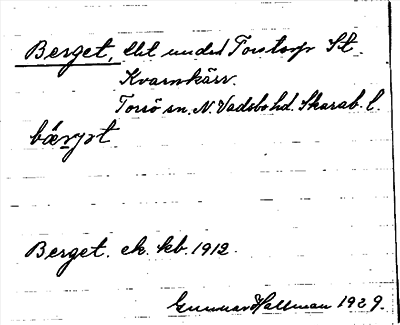 Berget, lht under Torstorp St.
Kvarnkärr.
Torsö sn. N. Vadsbo hd. Skarab. l.
bærjət
Berget. ek. kb. 1912.
Gunnar Hallman 1929.